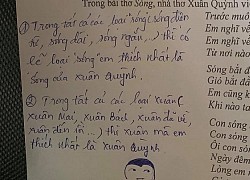 Trong bài thơ Sóng, nhà thơ Xuân Quỳnh vi
① Trong tất cả các loại sóng (sóng điện
từ, sóng dài, sóng ngắn,..) thì có
lẽ loại sóng em thích nhất là
sóng của xuân Quỳnh.
② Trong tất cả các loại xuân (
xuân Mai, xuân Bách, xuân đã về,
xuân đến rồi...) thì xuân mà em
thích nhất là xuân Quỳnh
Trước muôn
Em nghĩ về
Em nghĩ về
Từ nơi nào
Sóng bắt đ
Gió bắt đầ
Em cũng kh
Khi nào ta
Con sóng
Con sóng
Ôi con són
Ngày đêm
Lòng em
Cả trong